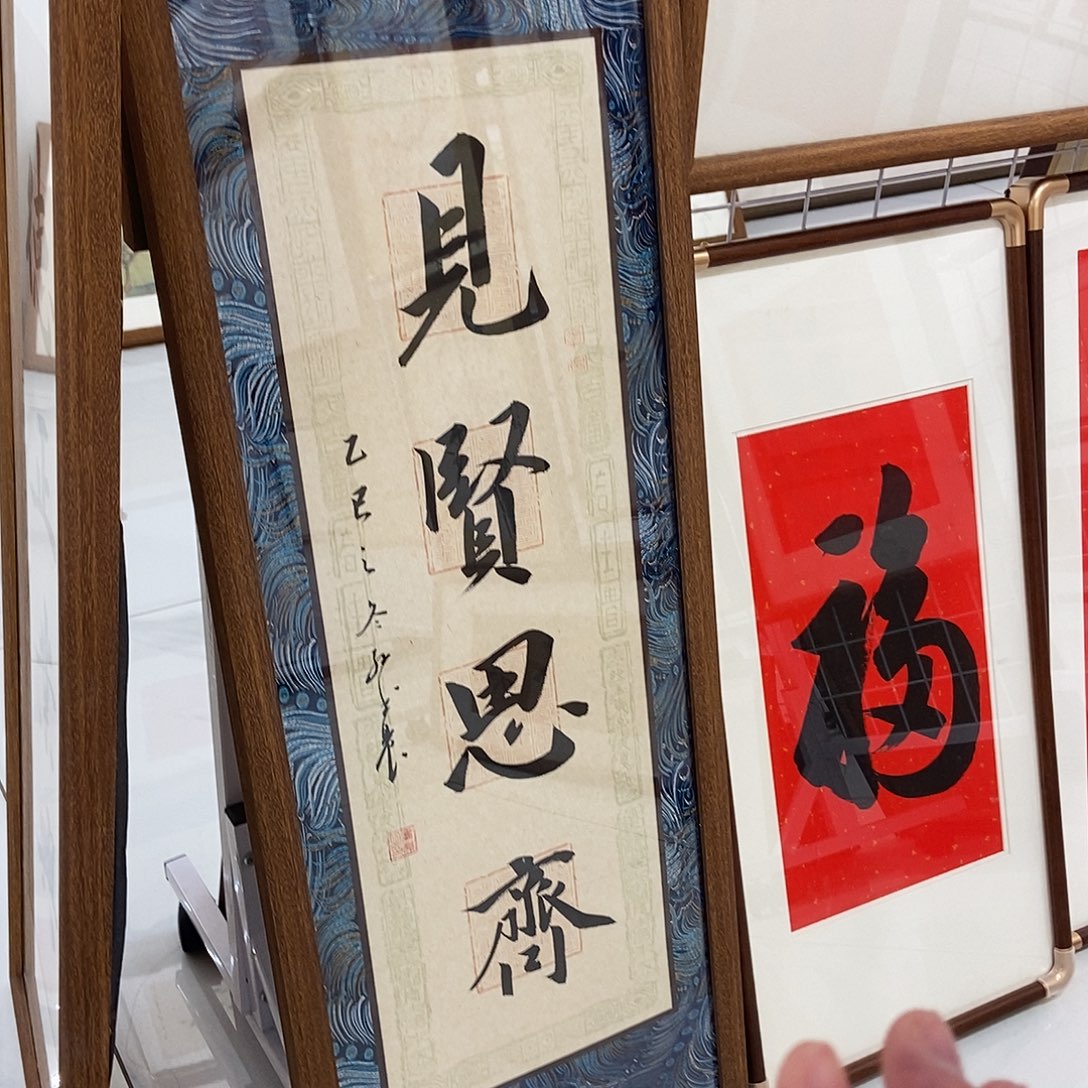 見賢思齊
乙巳之冬
福